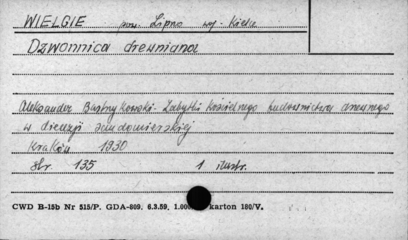 WIELGIE pow. Lipno wj. Kielce
Dzwonnica drewniana
Aleksander Bastrzykowski. Zabytki Kościelnego budownictwa drewnego
w diecezji sandomierskiej
Kraków 1930
str. 135 1 ilustr.
CWD B-15b Nr 515/P. GDA-809. 6.3.59. 1.000 karton 180/V.